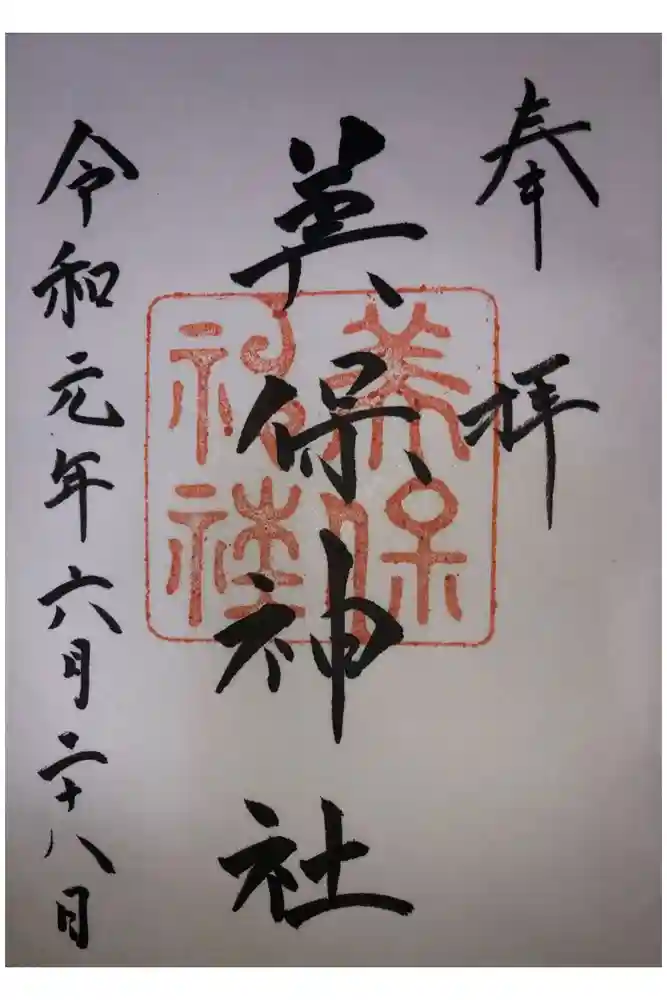 奉拝
美保神社
美保神社
令和元年六月二十八日